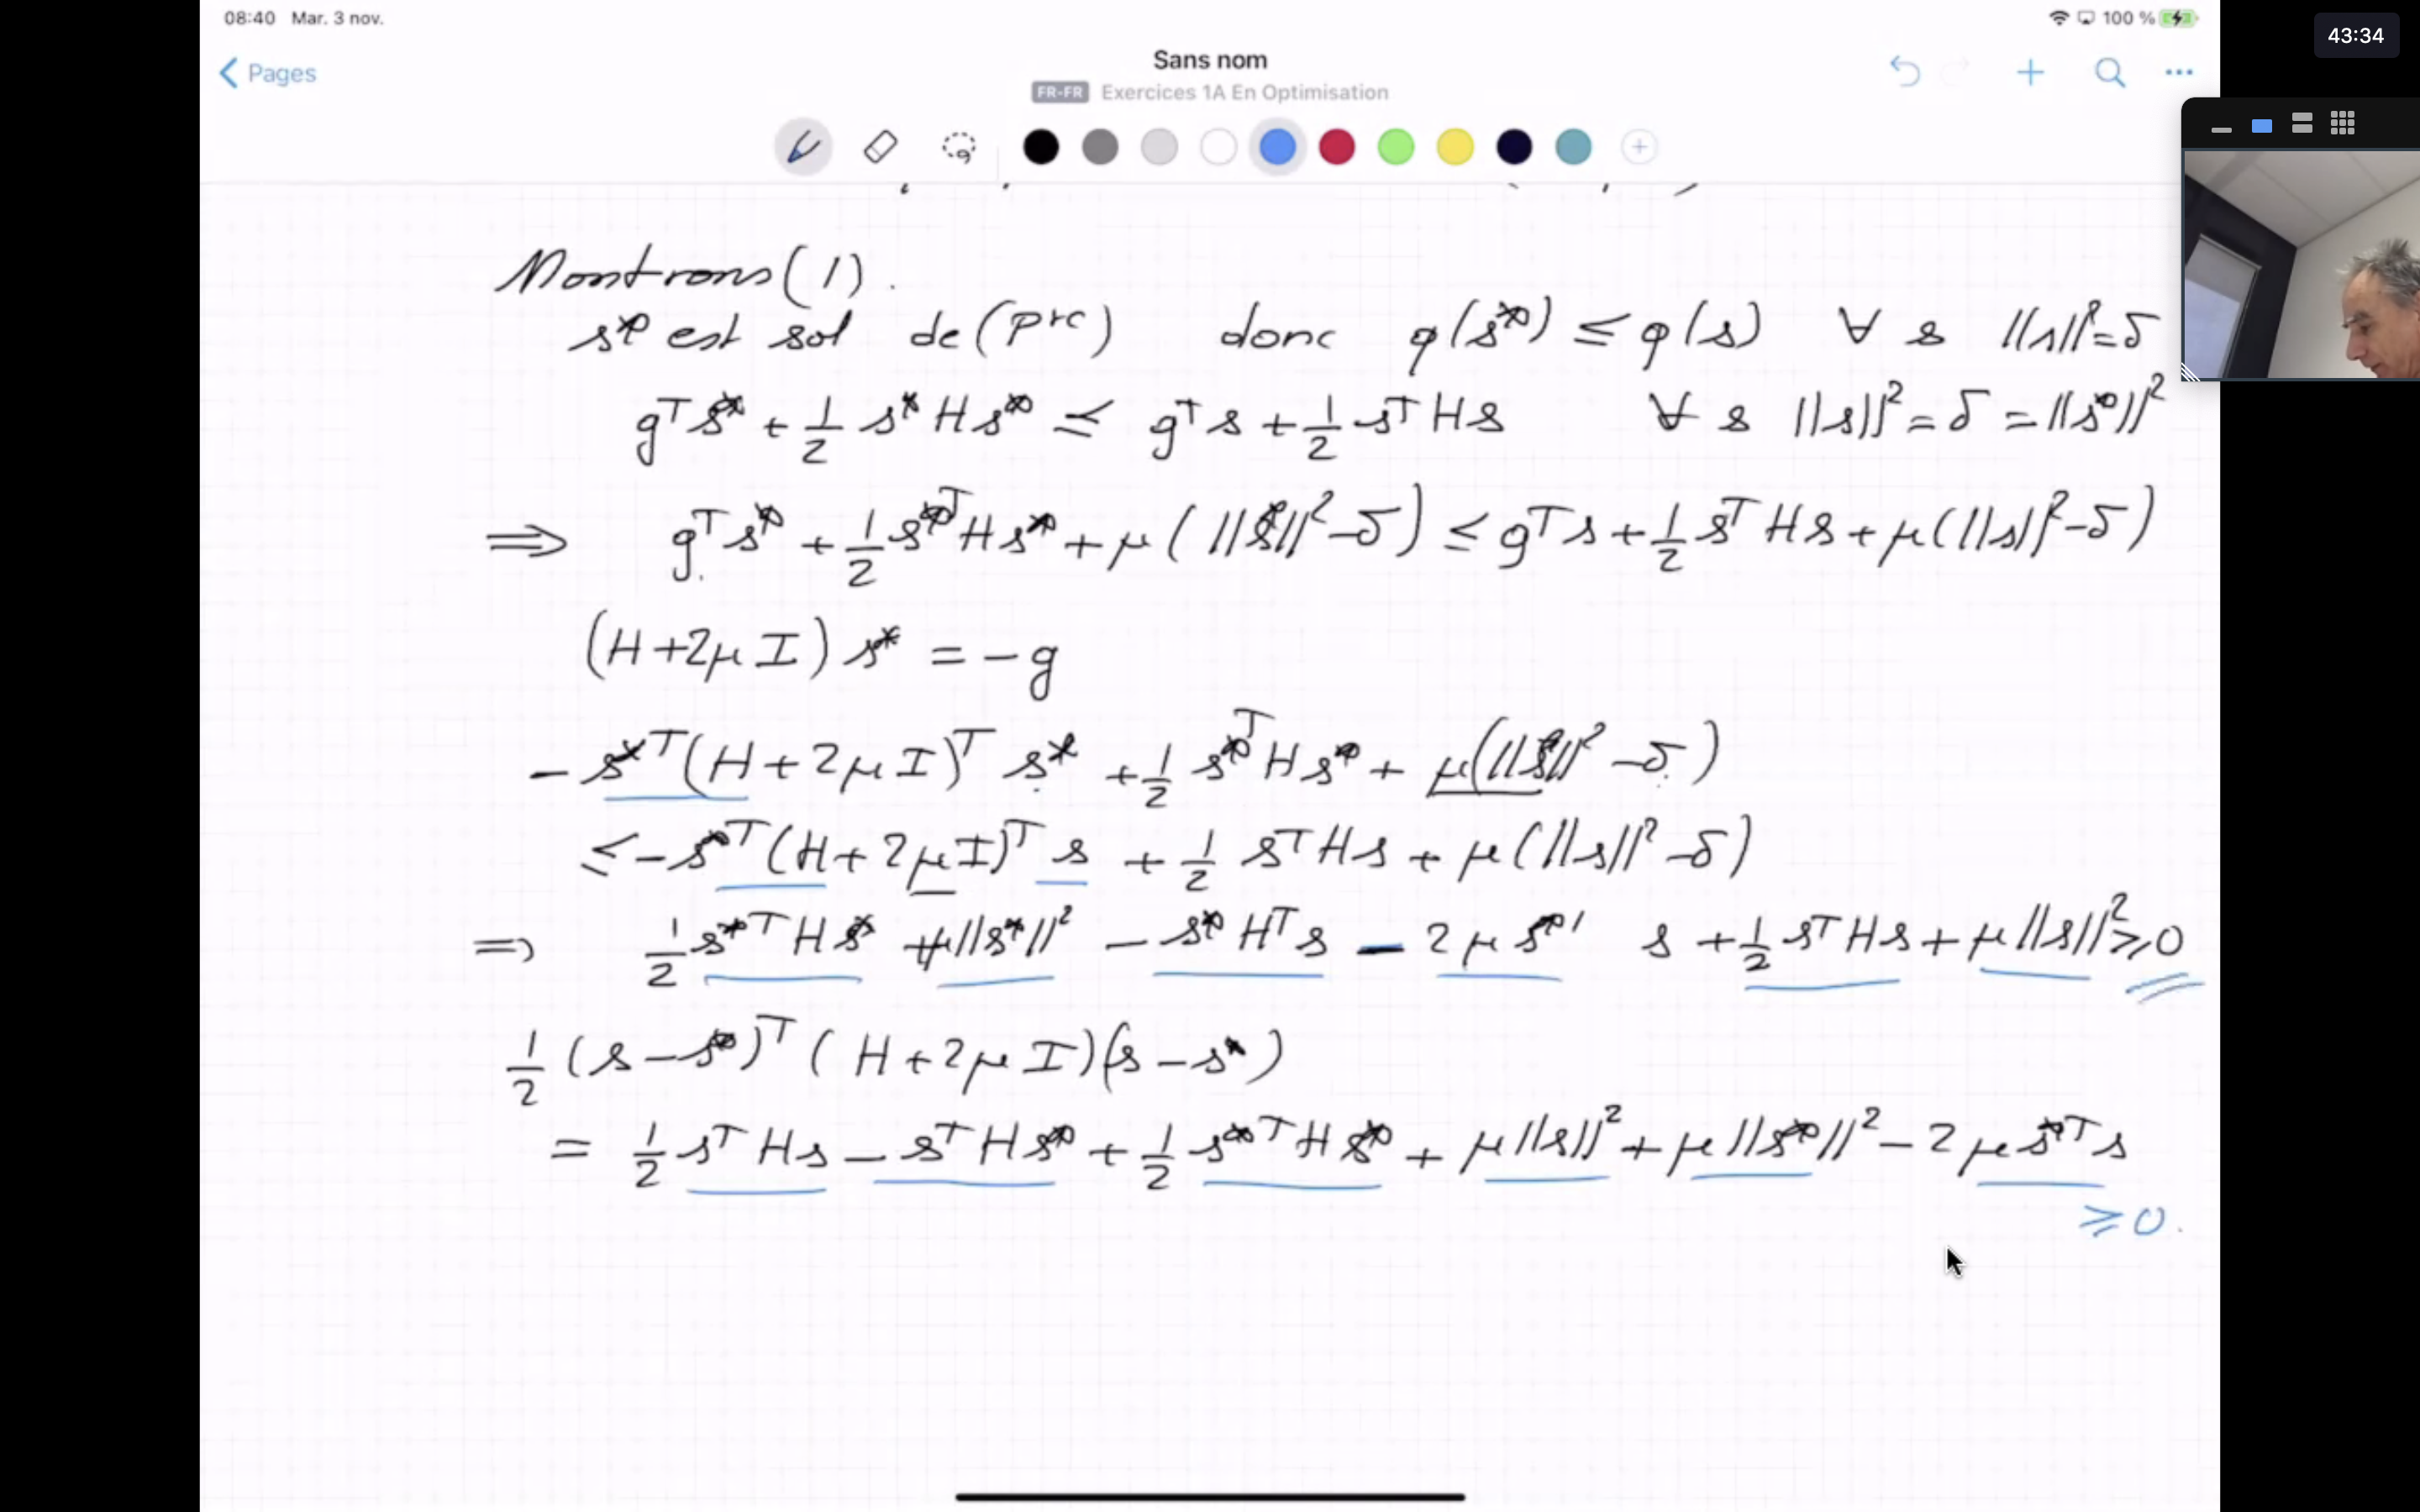 08:40 Mar. 3 nov.
100 %
43:34
Pages
Sans nom
FR-FR Exercices 1A En Optimisation
Montrons (1).
s* est sol de (Prc) donc q(s*) ≤ q(s) ∀ s ||s||² = δ
gᵀ s* + 1/2 s* H s* ≤ gᵀ s + 1/2 sᵀ H s ∀ s ||s||² = δ = ||s*||²
⟹ gᵀ s* + 1/2 s*ᵀ H s* + μ ( ||s*||² - δ ) ≤ gᵀ s + 1/2 sᵀ H s + μ ( ||s||² - δ )
(H + 2μ I) s* = - g
- s*ᵀ (H + 2μ I)ᵀ s* + 1/2 s*ᵀ H s* + μ ( ||s*||² - δ )
≤ - s*ᵀ (H + 2μ I)ᵀ s + 1/2 sᵀ H s + μ ( ||s||² - δ )
⟹ 1/2 s*ᵀ H s* + μ ||s*||² - s* Hᵀ s - 2 μ s*' s + 1/2 sᵀ H s + μ ||s||² ≥ 0
1/2 (s - s*)ᵀ ( H + 2μ I ) (s - s*)
= 1/2 sᵀ H s - sᵀ H s* + 1/2 s*ᵀ H s* + μ ||s||² + μ ||s*||² - 2 μ s*ᵀ s
≥ 0.